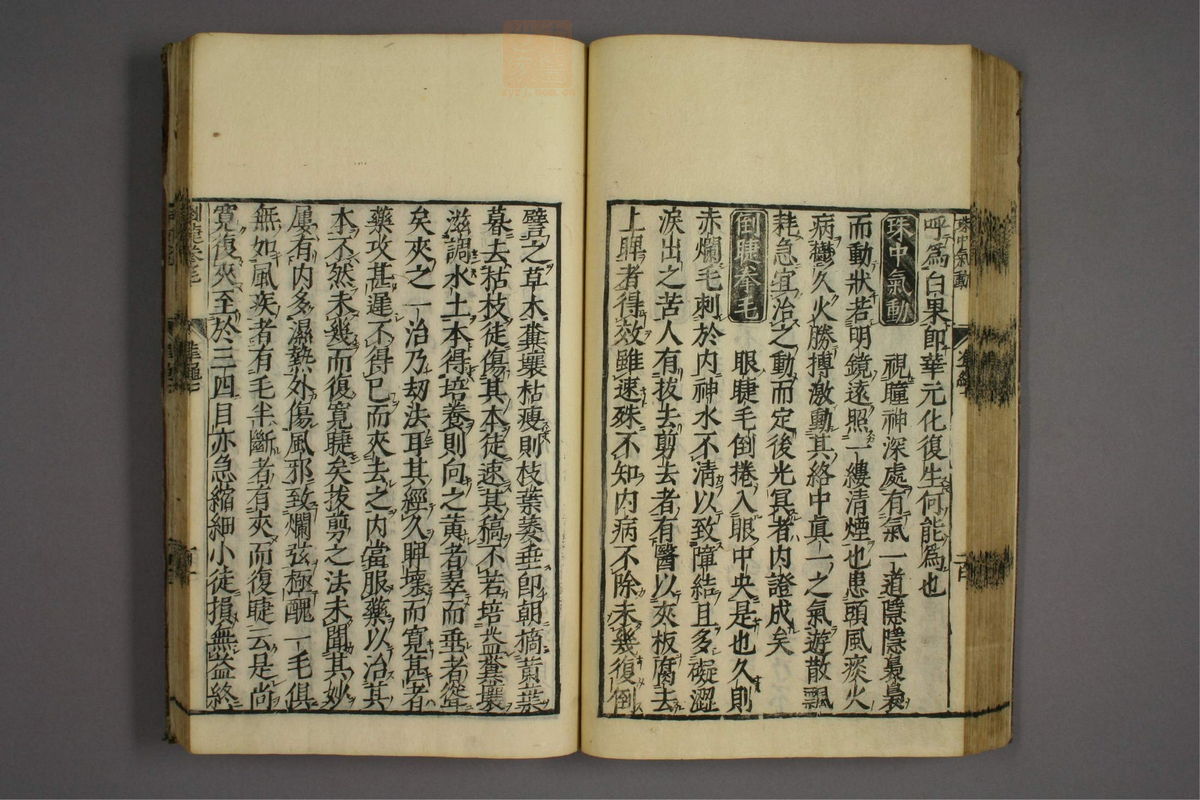 呼爲白果卽華元化復生何能爲也
珠中氣動 視瞳神深處有氣一道隱隱裊裊
而動狀若明鏡遠照一縷清煙也患頭風痰火
病鬱久火勝搏激動其絡中眞一之氣遊散飄
耗急宜治之動而定後光冥者內證成矣
倒睫拳毛 眼睫毛倒捲入眼中央是也久則
赤爛毛刺於内神水不清以致障結且多礙澀
淚出之苦人有拔去剪去者有醫以夾板腐去
上睥者得效雖速殊不知内病不除未幾復倒
譬之草木糞壤枯瘦則枝葉萎垂卽朝摘黃葉
暮去枯枝徒傷其本徒速其稿不若培益糞壤
滋調水土本得培養則向之黃者萃而垂者聳
矣夾之一治乃刼法耳其經久睥壞而寬甚者
藥攻甚遲不得已而夾去之内當服藥以治其
本不然未幾而復寬睫矣拔剪之法未聞其妙
屢有内多濕熱外傷風邪致爛弦極醜一毛俱
無如風疾者有毛半斷者有夾而復睫云是尚
寬復夾至於三四目亦急縮細小徒損無益終